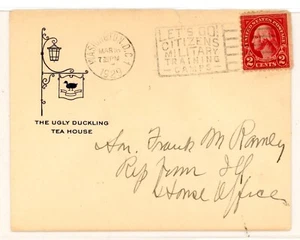 WASHINGTON, D.C.
MAR
LET'S GO!
CITIZENS
MILITARY
TRAINING
CAMPS
UNITED STATES POSTAGE
2 CENTS 2
THE UGLY DUCKLING
TEA HOUSE
Hon. Frank M Ramey
Rep from Ill
House Office